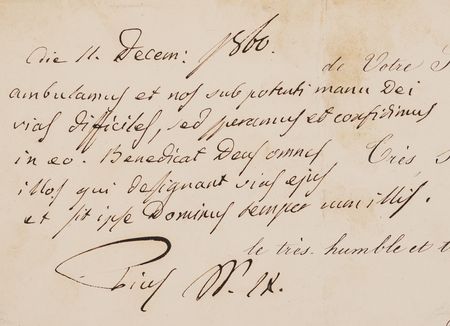 die 11. Decem: 1860.
de Votre
ambulamus et nos sub potenti manu Dei
vias difficiles, sed speramus et confidimus
in eo. Benedicat Deus omnes
Très
illos qui designant vias ejus
et sit ipse Dominus semper cum illis.
le très-humble et t
Pius P. IX.